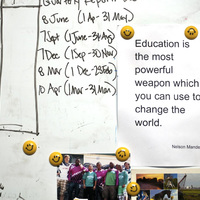 8 June (1 Apr - 31 May)
7 Sept (1 June - 31 Aug)
7 Dec (1 Sep - 30 Nov)
8 Mar (1 Dec - 28 Feb)
10 Apr (1 Mar - 31 Mar)
Education is
the most
powerful
weapon which
you can use to
change the
world.
Nelson Mandela